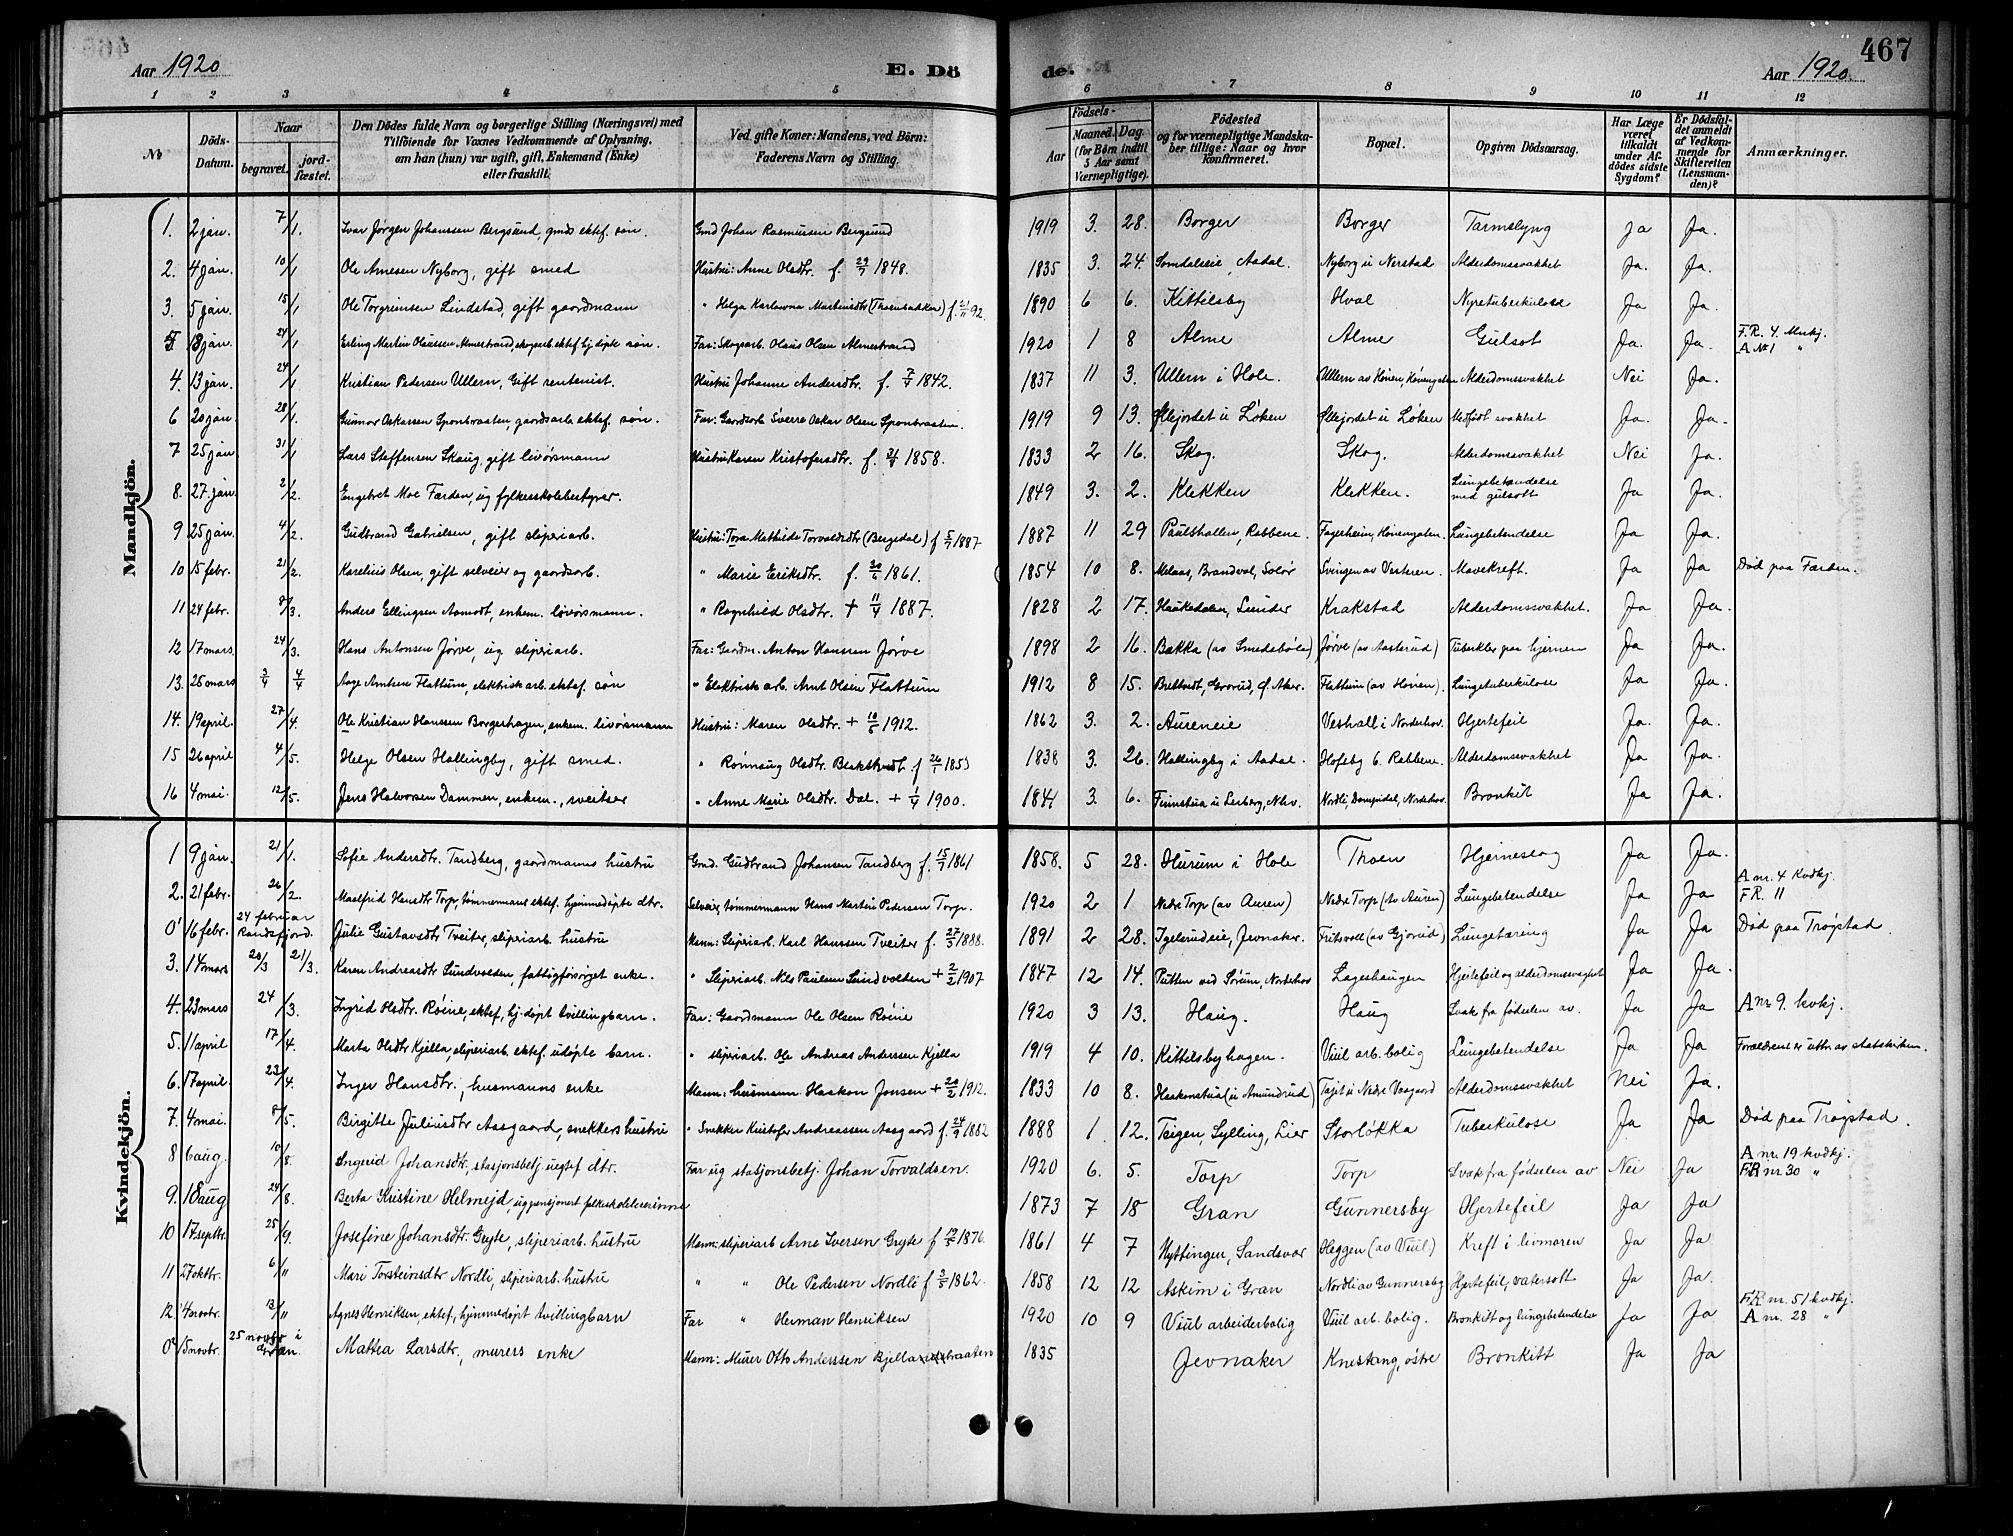 467
Aar 1920
E. Dö
de.
Aar 1920.
1 2 3 4 5 6 7 8 9 10 11 12
No
Döds-Datum.
Naar
begravet.
jord-fæstet.
Den Dödes fulde Navn og borgerlige Stilling (Næringsvei) med
Tilföiende for Voxnes Vedkommende af Oplysning,
om han (hun) var ugift, gift, Enkemand (Enke)
eller fraskilt.
Ved gifte Koner: Mandens, ved Börn:
Faderens Navn og Stilling.
Födsels-
Aar
Maaned. Dag.
(for Børn indtil
5 Aar samt
Værnepligtige).
Födested
og for værnepligtige Mandska-
ber tillige: Naar og hvor
konfirmeret.
Bopæl.
Opgiven Dödsaarsag.
Har Læge
været
tilkaldt
under Af-
dödes sidste
Sygdom?
Er Dödsfal-
det anmeldt
af Vedkom-
mende for
Skifteretten
(Lensman-
den)?
Anmærkninger.
Mandkjön.
1. 2 jan. 7/1. Ivar Jørgen Johanssen Bergsund, gmds ektef. søn. Gmd Johan Rasmussen Bergsund 1919 3. 28. Borger Borger Tarmslyng Ja Ja.
2. 4 jan. 10/1 Ole Arnesen Nyborg, gift smed Hustru: Anne Olsdtr. f. 1848. 1835 3. 24. Somdaleie, Aadal. Nyborg u Nerstad Alderdomssvakhet Ja. Ja.
3. 5 jan. 15/1 Ole Torgrimsen Lindstad, gift gaardmann " Helga Karlovna Martinsdtr (Thoenbakken) f. 21/11 92. 1890 6 6. Kittilsby Hval Nyretuberkulose Ja Ja.
5. 13 jan. 24/1 Erling Martin Olaussen Almestrand, skogarb. ektef. hj. døpte søn. Far: Skogarb. Olaus Olsen Almestrand 1920 1 8 Alme Alme Gulsot Ja. Ja. F.R. 4. Mnkj. A No 1 "
4. 13 jan. 24/1 Kristian Pedersen Ullern, Gift rentenist. Hustru Johanne Andersdtr. f. 1842. 1837 11 3. Ullern i Hole. Ullern av Hønen, Hønengaten Alderdomssvakhet Nei Ja.
6 20 jan. 28/1. Gunnar Oskarsen Sponbraaten gaardsarb. ektef. søn. Far: Gaardsarb Sverre Oskar Olsen Sponbraaten. 1919 9 13. Ellejordet u Løken Ellejordet u Løken Medfødt svakhet Ja. Ja.
7 25 jan 31/1 Lars Steffensen Skaug, gift livørsmann Hustru Karen Kristofersdtr. f. 1858. 1833 2 16. Skog. Skog. Alderdomssvakhet Nei Ja.
8. 27. jan. 2/2. Engebret Moe Færden, ug fylkesskolebestyrer. 1849 3. 2. Klekken Klekken. Lungebetændelse med gulsott Ja Ja.
9 25 jan. 4/2. Gudbrand Gabrielsen, gift sliperiarb. Hustru: Tora Mathilde Torvaldsdtr (Bergedal) f 5/7 1887 1887 11 29 Paulshallen, Rabbene. Fagerheim, Hønengaten. Lungebetendelse Ja Ja.
10 15 febr. 21/2. Karelius Olsen, gift selveier og gaardsarb. " Marie Eriksdtr. f. 1861. 1854 10 8. Melaas, Brandval, Solør Svingen av Vesteren. Mavekreft. Ja Ja Død paa Færden.
11 24 febr. 8/3. Anders Ellingsen Aamodt, enkem. livørsmann. " Ragnhild Olsdtr. + 1887. 1828 2 17. Haukedalen, Lunder Krakstad Alderdomssvakhet. Ja Ja.
12 17 mars. 24/3. Hans Antonsen Jørve, ug sliperiarb. Far: Gaardm. Anton Hanssen Jørve 1898 2 16. Bakka (av Smedsbøle) Jørve (av Aasterud) Tuberkler paa hjernen Ja Ja.
13. 28 mars 3/4 4/4 Aage Arntsen Flattum, elektrisk arb. ektef. søn " Elektrisk arb. Arnt Olsen Flattum 1912 8 15. Bredtvedt, Grorud, Ø. Aker. Flattum (av Hønen). Lungetuberkulose Ja Ja.
14. 19 april. 27/4. Ole Kristian Hanssen Borgershagen, enkem. livørsmann Hustru: Maren Olsdtr. + 1912. 1862 3. 2. Aureneie Veshall i Norderhov. Hjertefeil Ja. Ja.
15 26 april 4/5. Helge Olsen Hallingby, gift smed. " Rønnaug Olsdtr. f 26/1 1853 1838 3. 26. Hallingby i Aadal. Hofsby 6. Rabbene. Alderdomssvakhet Ja Ja.
16 4 mai. 12/5. Jens Halvorsen Dammen, enkem., sveitser " Anne Marie Olsdtr. Dal. + 1900. 1841 3. 6. Finnstua u Lerberg, Nhv. Nordli, Norderhov. Bronkit Ja Ja.
Kvindekjön.
1 9 jan. 21/1. Sofie Andersdtr. Tandberg, gaardmanns hustru Gmd. Gudbrand Johansen Tandberg f. 15/7 1861 1858. 5 28. Hurum i Hole Thoen Hjerneslag Ja Ja.
2. 21 febr. 26/2. Maalfrid Hansdtr Torp, tømmermans ektef. hjemmedøpte dtr. Selveier, tømmermann Hans Martin Pedersen Torp. 1920 2 1 Nedre Torp (av Auren) Nedre Torp (av Auren) Lungebetendelse Ja Ja A nr. 4 Kvdkj. F.R. 11
0' 16 febr. 24 februar Randsfjord. Julie Gustavsdtr Tveiter, sliperiarb. hustru Mann: Sliperiarb. Karl Hanssen Tveiter f. 27/5 1888. 1891 2 28. Igelsrudeie, Jevnaker. Fritsvoll (av Gjørud) Lungetæring Ja Ja Død paa Trøgstad.
3. 14 mars 20/3 21/3. Karen Andreasdtr Sundvolden, fattigforsörget enke. " Sliperiarb. Nils Paulsen Sundvolden + 2/2 1907 1847 12 14. Putten ved Sørum, Norderhov Lageshaugen Hjertefeil og alderdomssvaghet Ja Ja.
4. 23 mars 24/3. Ingrid Olsdtr. Røine, ektef. hj. døpt tvillingbarn. Far: Gaardmann Ole Olsen Røine 1920 3 13. Haug. Haug Svak fra fødselen av. Ja Ja A nr 9. kvkj.
5. 11 april 17/4. Marta Olsdtr Kjella, sliperiarb. ektef. udøpte barn. " sliperiarb. Ole Andreas Anderssen Kjella 1919 4 10. Kittilsbyhagen. Viul arb. bolig Lungebetendelse Ja Ja Forældrene er uttr. av statskirken.
6. 17 april. 23/4. Inger Hansdtr., husmanns enke Mann: husmann Haakon Jonsen + 20/2 1912. 1833 10 8. Haakonstua (u Amundrud) Tajet u Nedre Vaagaard Alderdomssvakhet Nei Ja.
7. 4 mai. 8/5. Birgitte Juliusdtr Aasgaard, snekkers hustru " Snekker Kristofer Andreassen Aasgaard f. 24/9 1882 1888 1 12. Teigen, Sylling, Lier Storløkka Tuberkulose Ja Ja Død paa Trøgstad.
8 6 aug. 10/8. Ingerid Johansdtr, stasjonsbetj. uegtef dtr. Far ug stasjonsbetj. Johan Torvaldsen. 1920 6. 5. Torp Torp Svak fra fødselen av Nei Ja A nr. 19 kvdkj. FR nr 30 "
9. 18 aug 24/8. Berta Kristine Helmejd, ug pensjonert folkeskolelærerinne 1873 7 18 Gran Gunnersby Hjertefeil Ja Ja
10 17. septbr. 25/9. Josefine Johansdtr. Gryte, sliperiarb. hustru Mann: sliperiarb Arne Iversen Gryte f 1876. 1861 4 7 Nyttingen, Sandsvær Heggen (av Viul) Kreft i livmoren Ja Ja
11 27 oktbr. 6/11 Mari Torsteinsdtr Nordli, sliperiarb. hustru " " Ole Pedersen Nordli f 3/5 1862. 1858 12 12 Askim i Gran Nordli av Gunnersby Hjertefeil, vatersott Ja Ja.
12. 4 novbr. 13/11 Agnes Henriksen, ektef. hjemmedøpt tvillingbarn Far " Herman Henriksen 1920 10 9 Viul arbeiderbolig Viul arb. bolig. Bronkitt og lungebetendelse Ja Ja FR nr. 51 kvdkj. A nr. 28 "
0' 15 novbr. 25 novbr i Gran. Mattea Larsdtr., murers enke Mann: Murer Otto Anderssen Bjellabraaten 1835 Jevnaker Knestang, østre Bronkitt Ja Ja